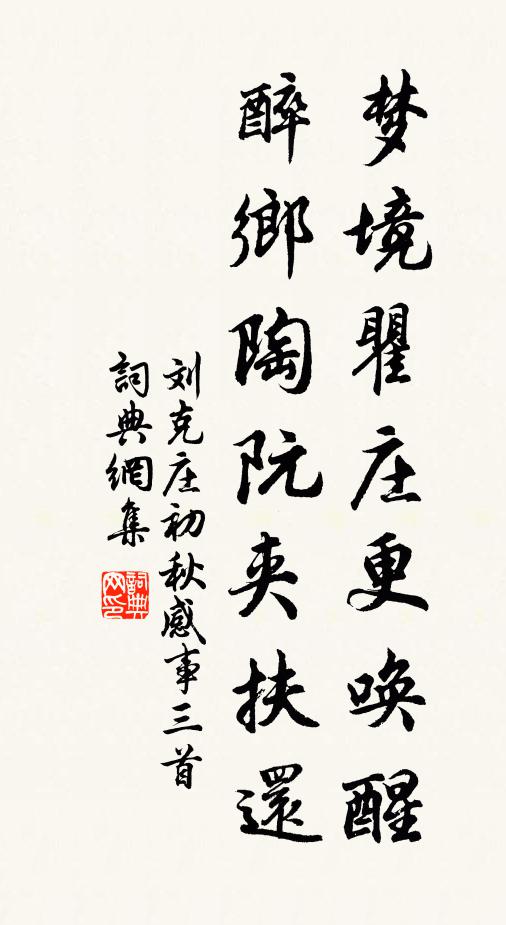 梦境瞿庄更唤醒
醉鄉陶阮夹扶還
刘克庄初秋感事三首
詞典網集
詞典网印